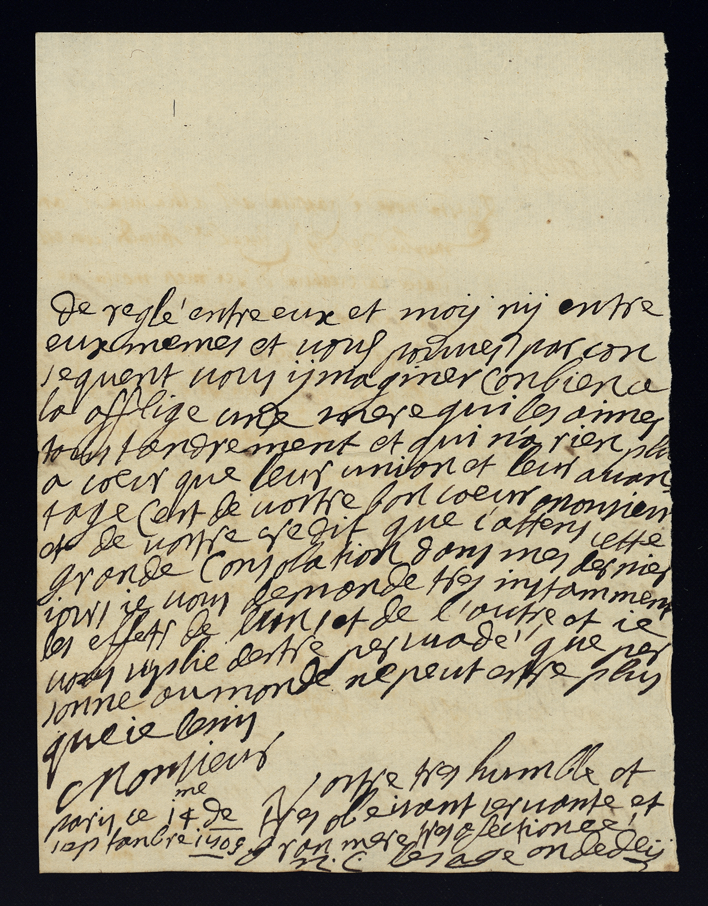 de reglé entre eux et moÿ nÿ entre
eux memes et vous pouues par con
sequent vous ijmaginer conbien ce
la afflige une mere qui les aimes
tous tandrement et qui n'a rien plu
a coeur que leur union et leur auan
tage C'est de vostre bon coeur monsieur
et de vostre credit que i'attens cette
grande Consolation dans mes dernier
iours ie vous demande tres instamment
les effets de l'un, et de l'autre et ie
vous suplie destre persuadé, que per
sonne au monde ne peut estre plus
que ie suis
Monsieur
Vostre tres humble et
paris ce 14me de tres obeissant seruante, et
septanbre 1705 gran mere tres afectionée,
M. C.